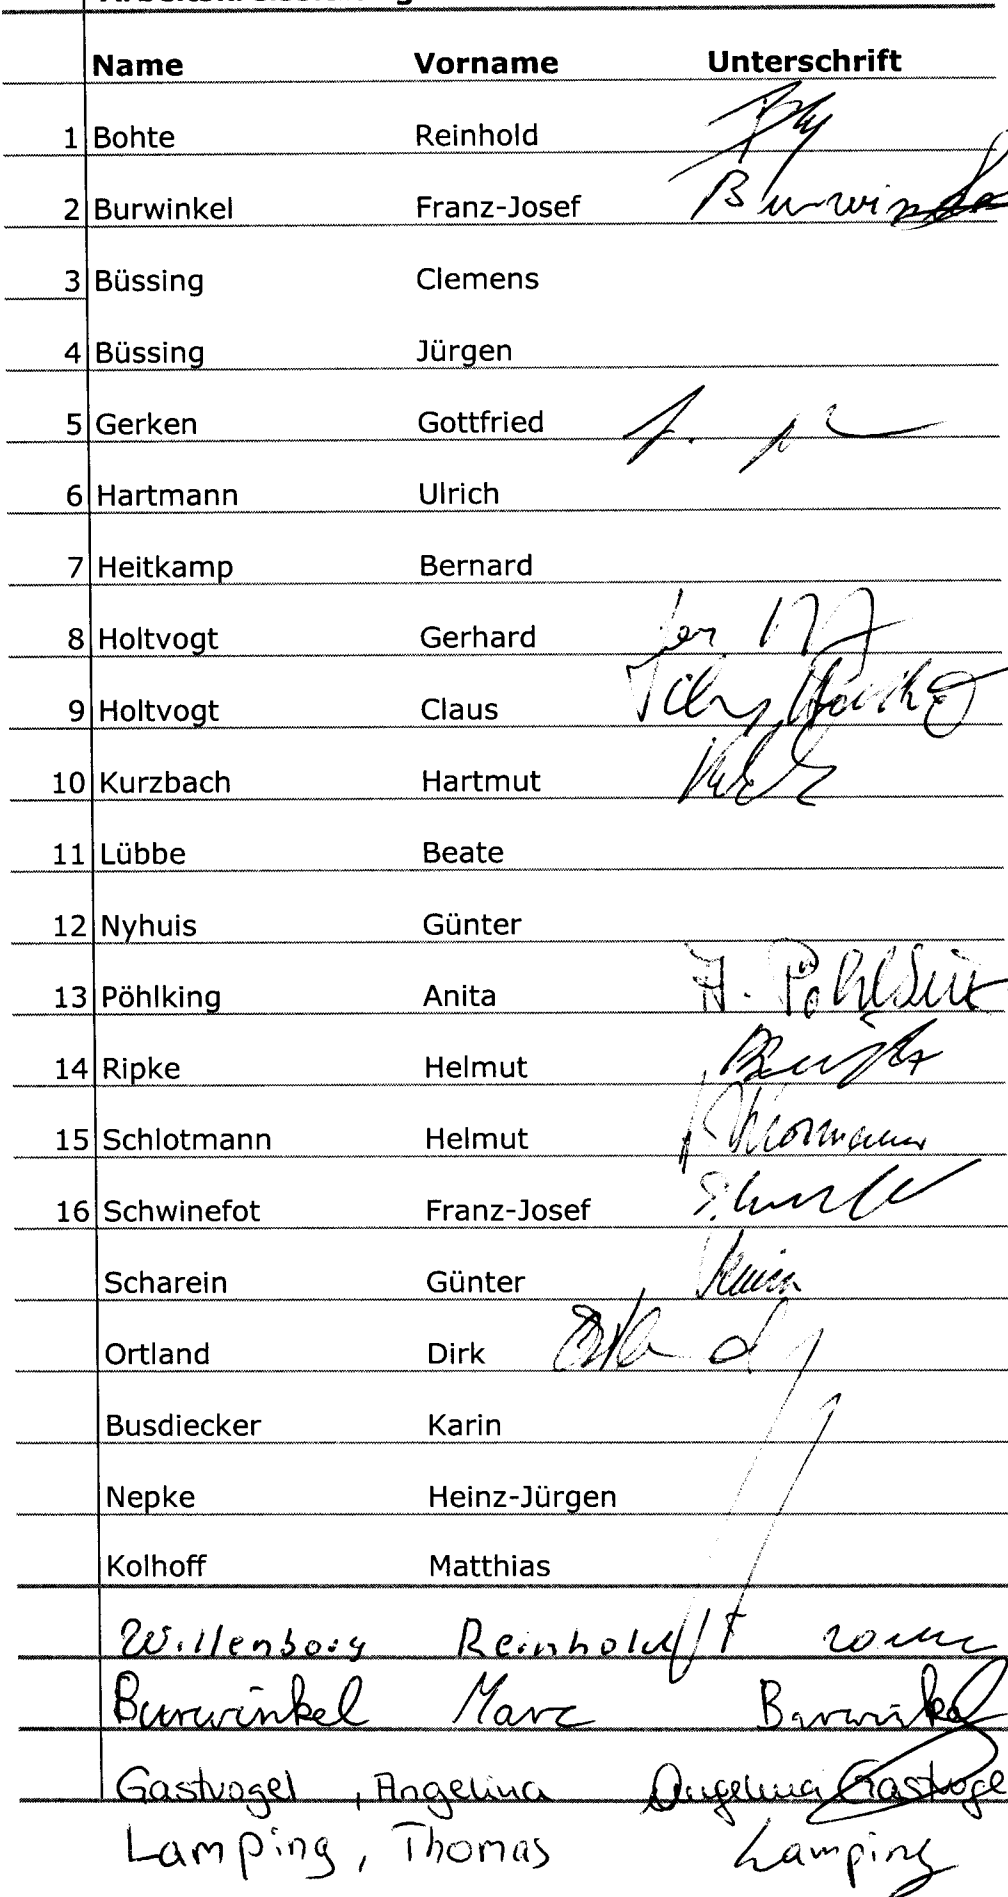 Name Vorname Unterschrift
1 Bohte Reinhold
2 Burwinkel Franz-Josef Burwinkel
3 Büssing Clemens
4 Büssing Jürgen
5 Gerken Gottfried
6 Hartmann Ulrich
7 Heitkamp Bernard
8 Holtvogt Gerhard
9 Holtvogt Claus
10 Kurzbach Hartmut
11 Lübbe Beate
12 Nyhuis Günter
13 Pöhlking Anita A. Pöhlking
14 Ripke Helmut
15 Schlotmann Helmut
16 Schwinefot Franz-Josef
Scharein Günter
Ortland Dirk Ortland
Busdiecker Karin
Nepke Heinz-Jürgen
Kolhoff Matthias
Willenborg Reinhold
Burwinkel Marc Burwinkel
Gastvogel , Angelina Angelina Gastvogel
Lamping, Thomas Lamping